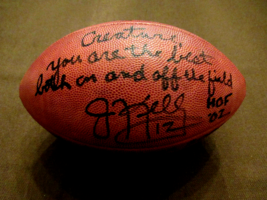 Creature,
you are the best
both on and off the field
Jim Kelly HOF
12 '02